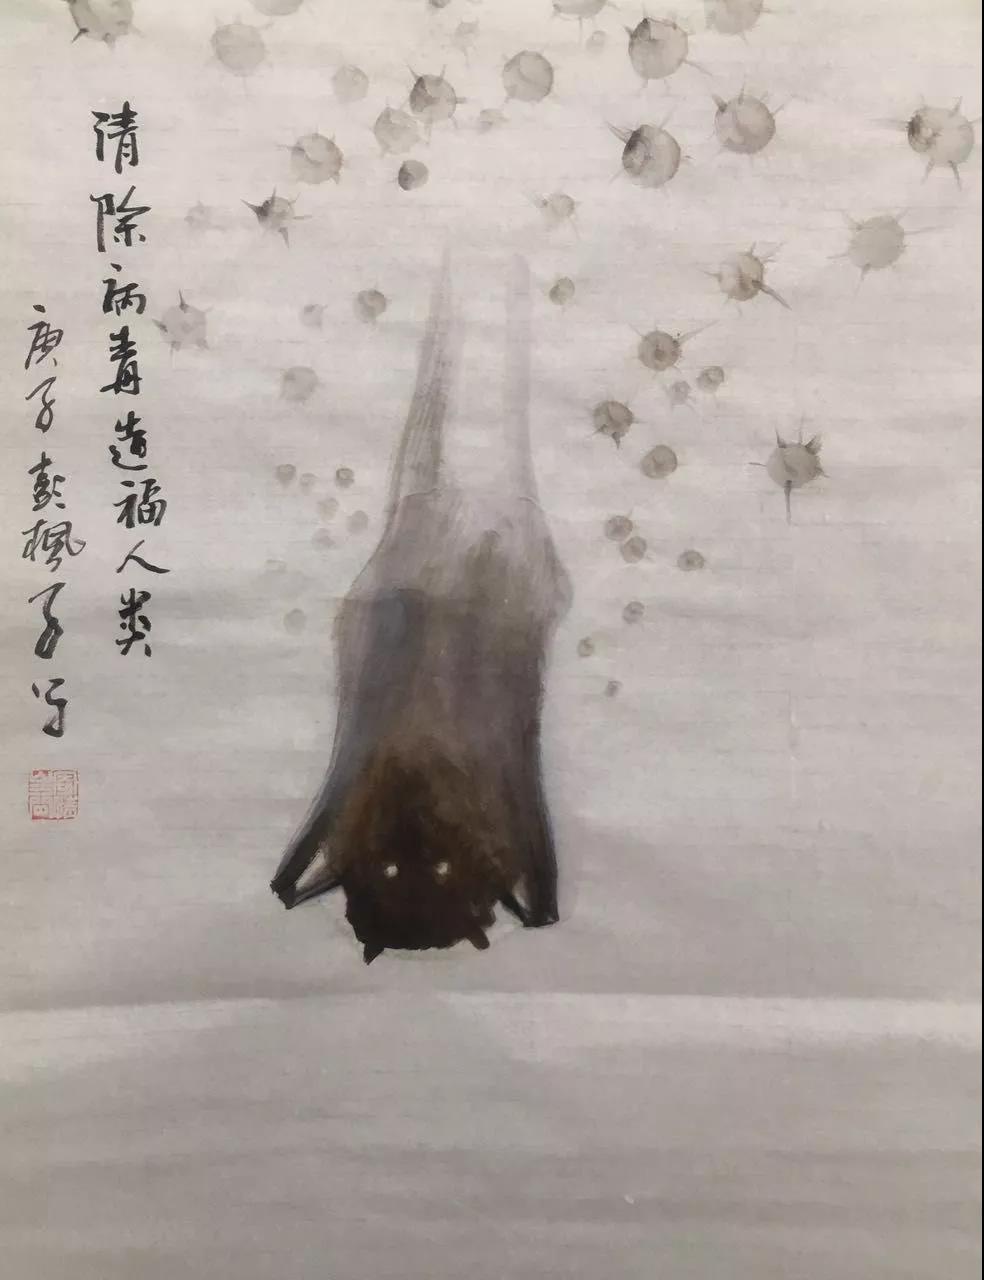 清除病毒造福人类
庚子彭枫写